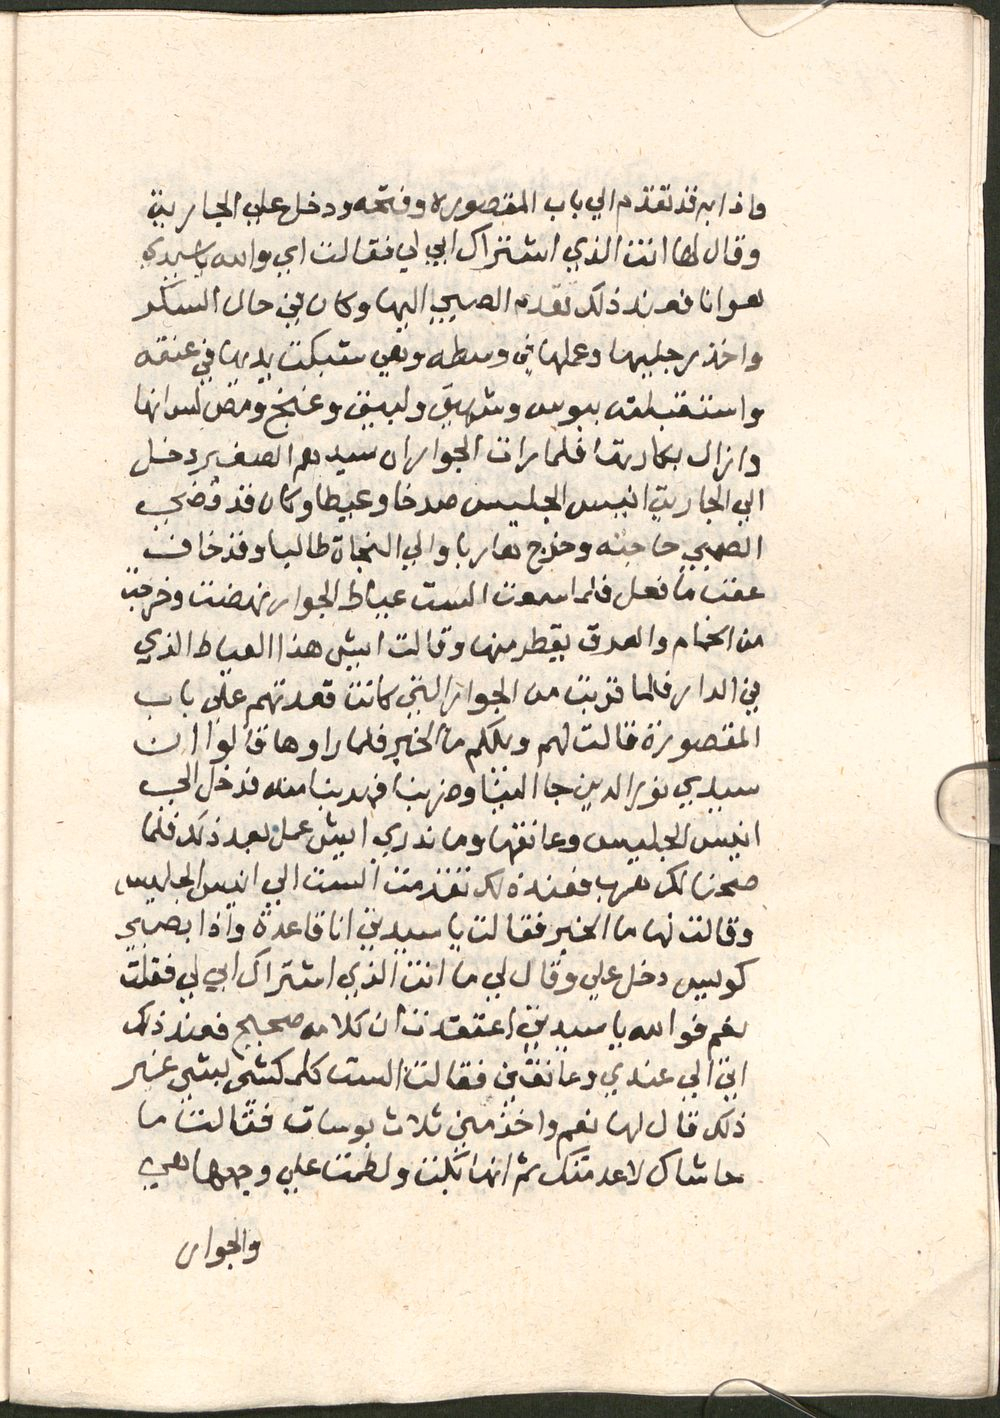 واذا به قد تقدم الي باب المقصوره وفتحه ودخل علي الجارية
وقال لها انتا الذي اشتراك ابي لي فقالت اي والله يا سيدي
هو انا فعند ذلك تقدم الصبي اليها وكان في حال السكر
واخذ رجليها وعملها في وسطه وهي شبكت يديها في عنقه
واستقبلته ببوس وشهيق ولبيق وغنج ومص لسانها
وازال بكارتها فلما رات الجوار ان سيدهم الصغير دخل
الي الجارية انيس الجليس صرخا وعيطا وكان قد قضي
الصبي حاجته وخرج هاربا والي النجاة طالبا وقد خاف
عقب ما فعل فلما سمعت الست عياط الجوار نهضت وخرجت
من الحمام والعرق يقطر منها وقالت ايش هذا العياط الذي
في الدار فلما قربت من الجوار التي كانت قعدتهم علي باب
المقصورة قالت لهم ويلكم ما الخبر فلما راوها قالوا ان
سيدي نور الدين جا الينا وضربنا فهربنا منه فدخل الي
انيس الجليس وعانقها وما ندري ايش عمل بعد ذلك فلما
صحنا لك هرب فعند ذلك تقدمت الست الي انيس الجليس
وقالت لها ما الخبر فقالت يا سيدتي انا قاعدة واذا بصبي
كويس دخل علي وقال لي ما انتا الذي اشتراك ابي لي فقلت
نعم فوالله يا سيدتي اعتقدت ان كلامه صحيح فعند ذلك
اتي الي عندي وعانقني فقالت الست كلمكشي بشي غير
ذلك قال لها نعم واخذ مني ثلاث بوسات فقالت ما
حاشاك لا عدمتك ثم انها بكت ولطمت علي وجهها هي
والجوار